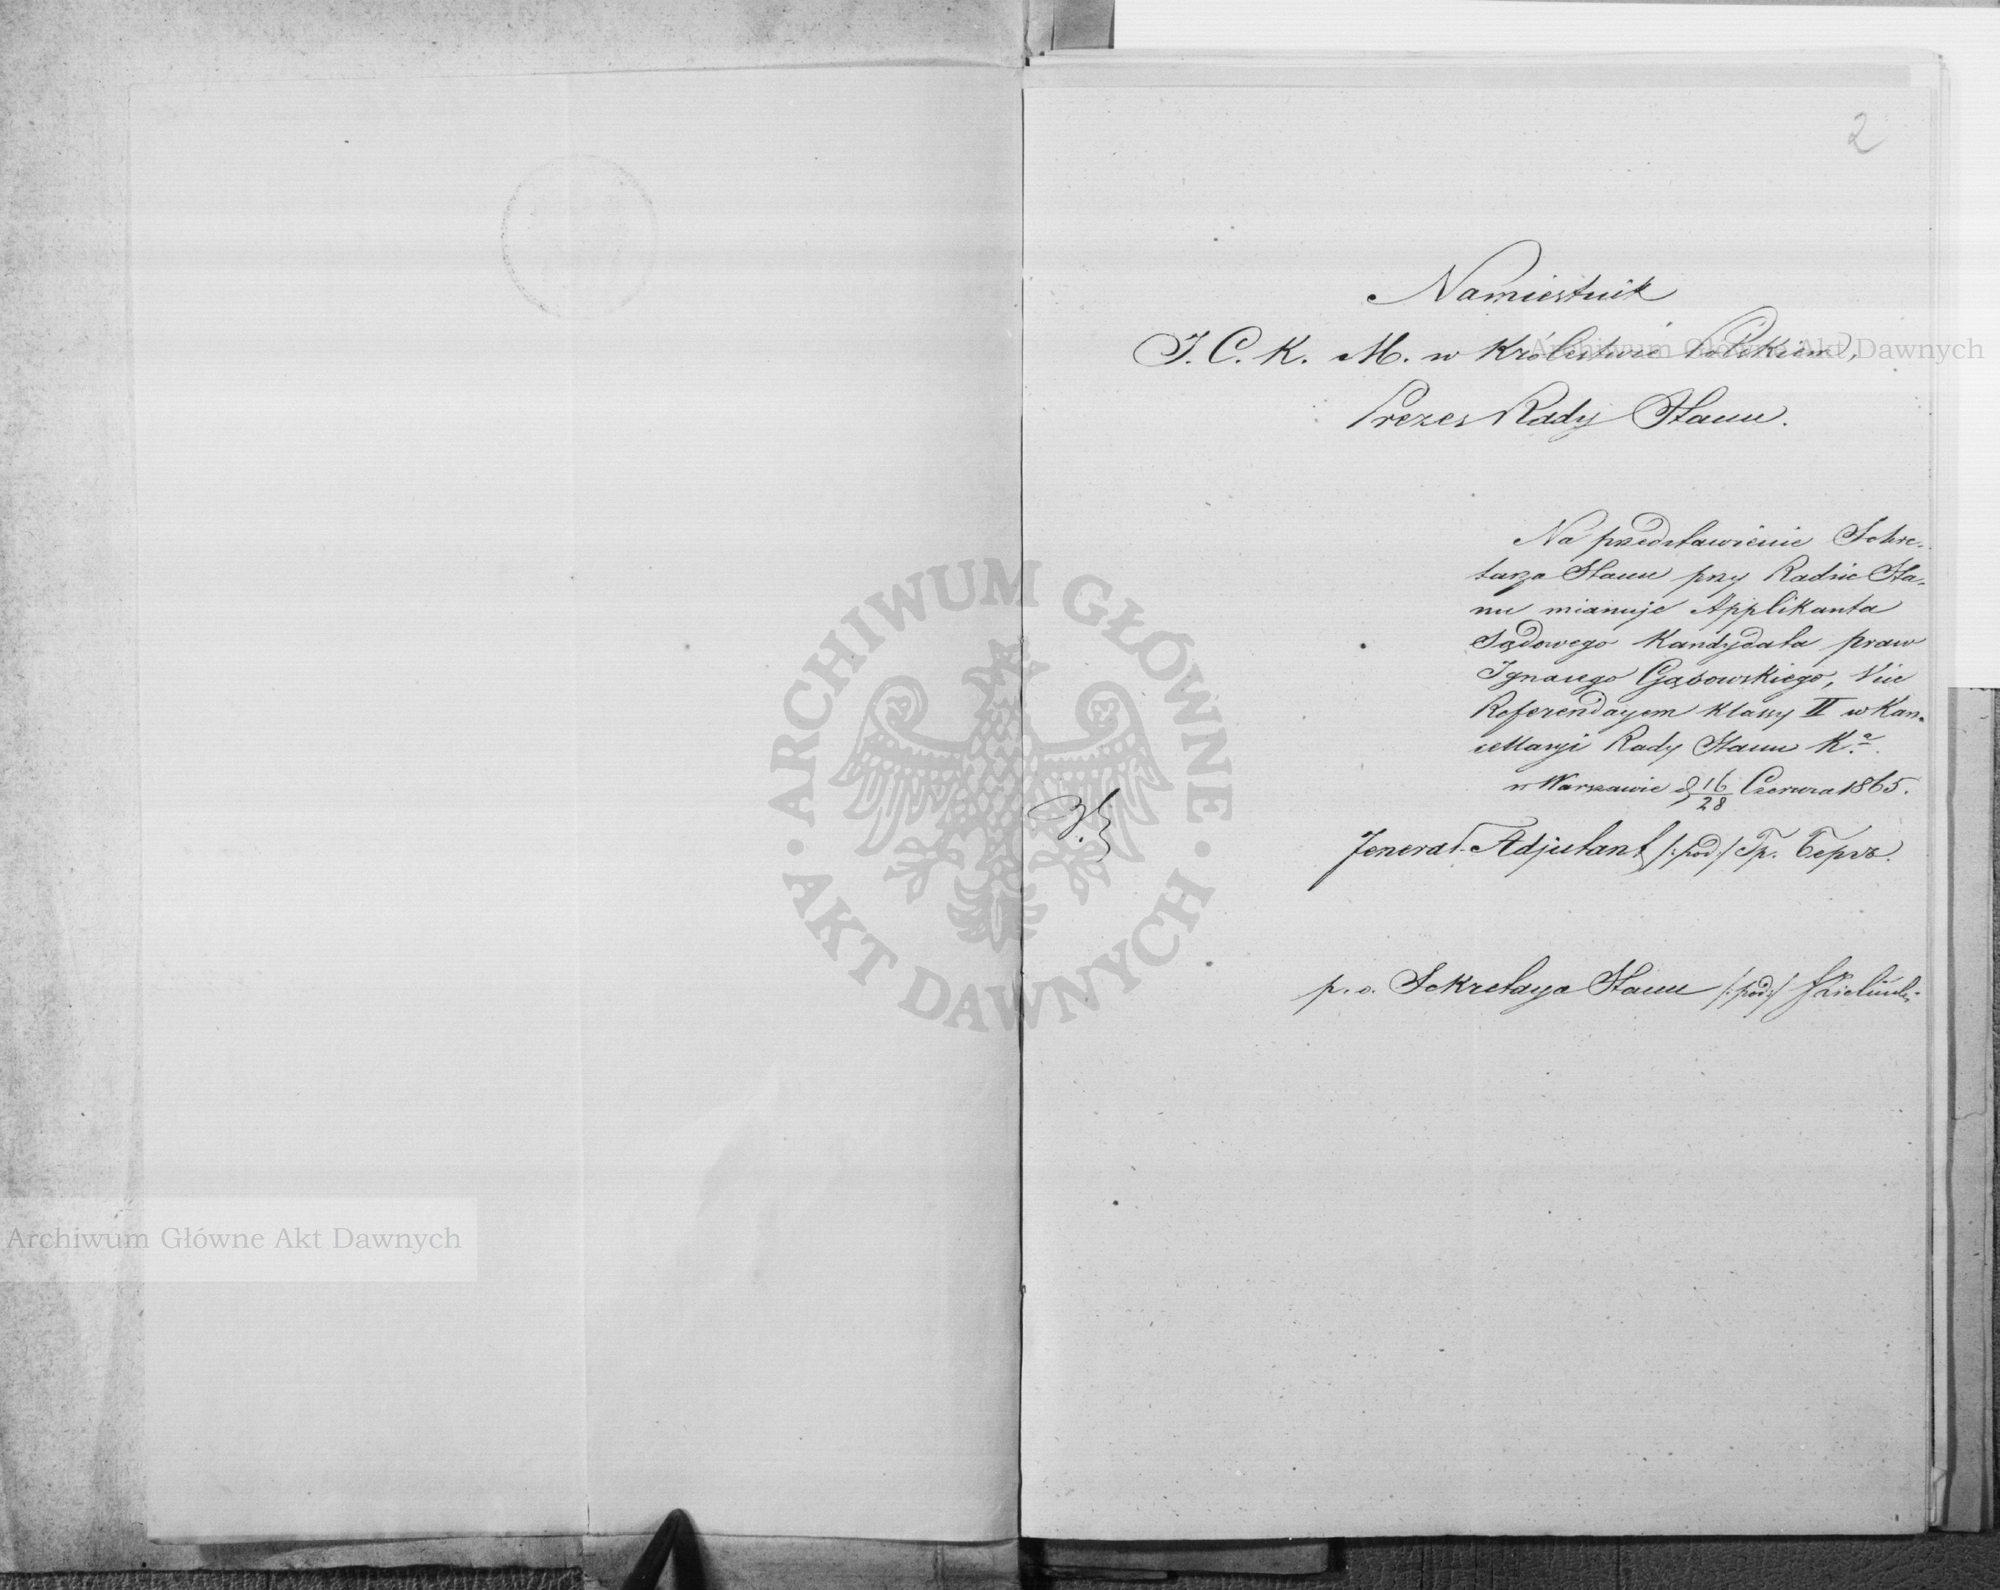 2
Namiestnik
J. C. K. M. w Królestwie Polskiem,
Prezes Rady Stanu.
Na przedstawienie Sekre-
tarza Stanu przy Radzie Sta-
nu mianuje Applikanta
Sądowego Kandydata praw
Ignacego Gąsowskiego, Vice
Referendarzem klassy II w Kan-
cellaryi Rady Stanu K.
w Warszawie d 16/28 Czerwca 1865.
Jenerał-Adjutant /:pod:/ Гр. Бергъ.
p. o. Sekretarza Stanu /:pod:/ J Zieliński
ARCHIWUM GŁÓWNE
AKT DAWNYCH
Archiwum Główne Akt Dawnych
Archiwum Główne Akt Dawnych